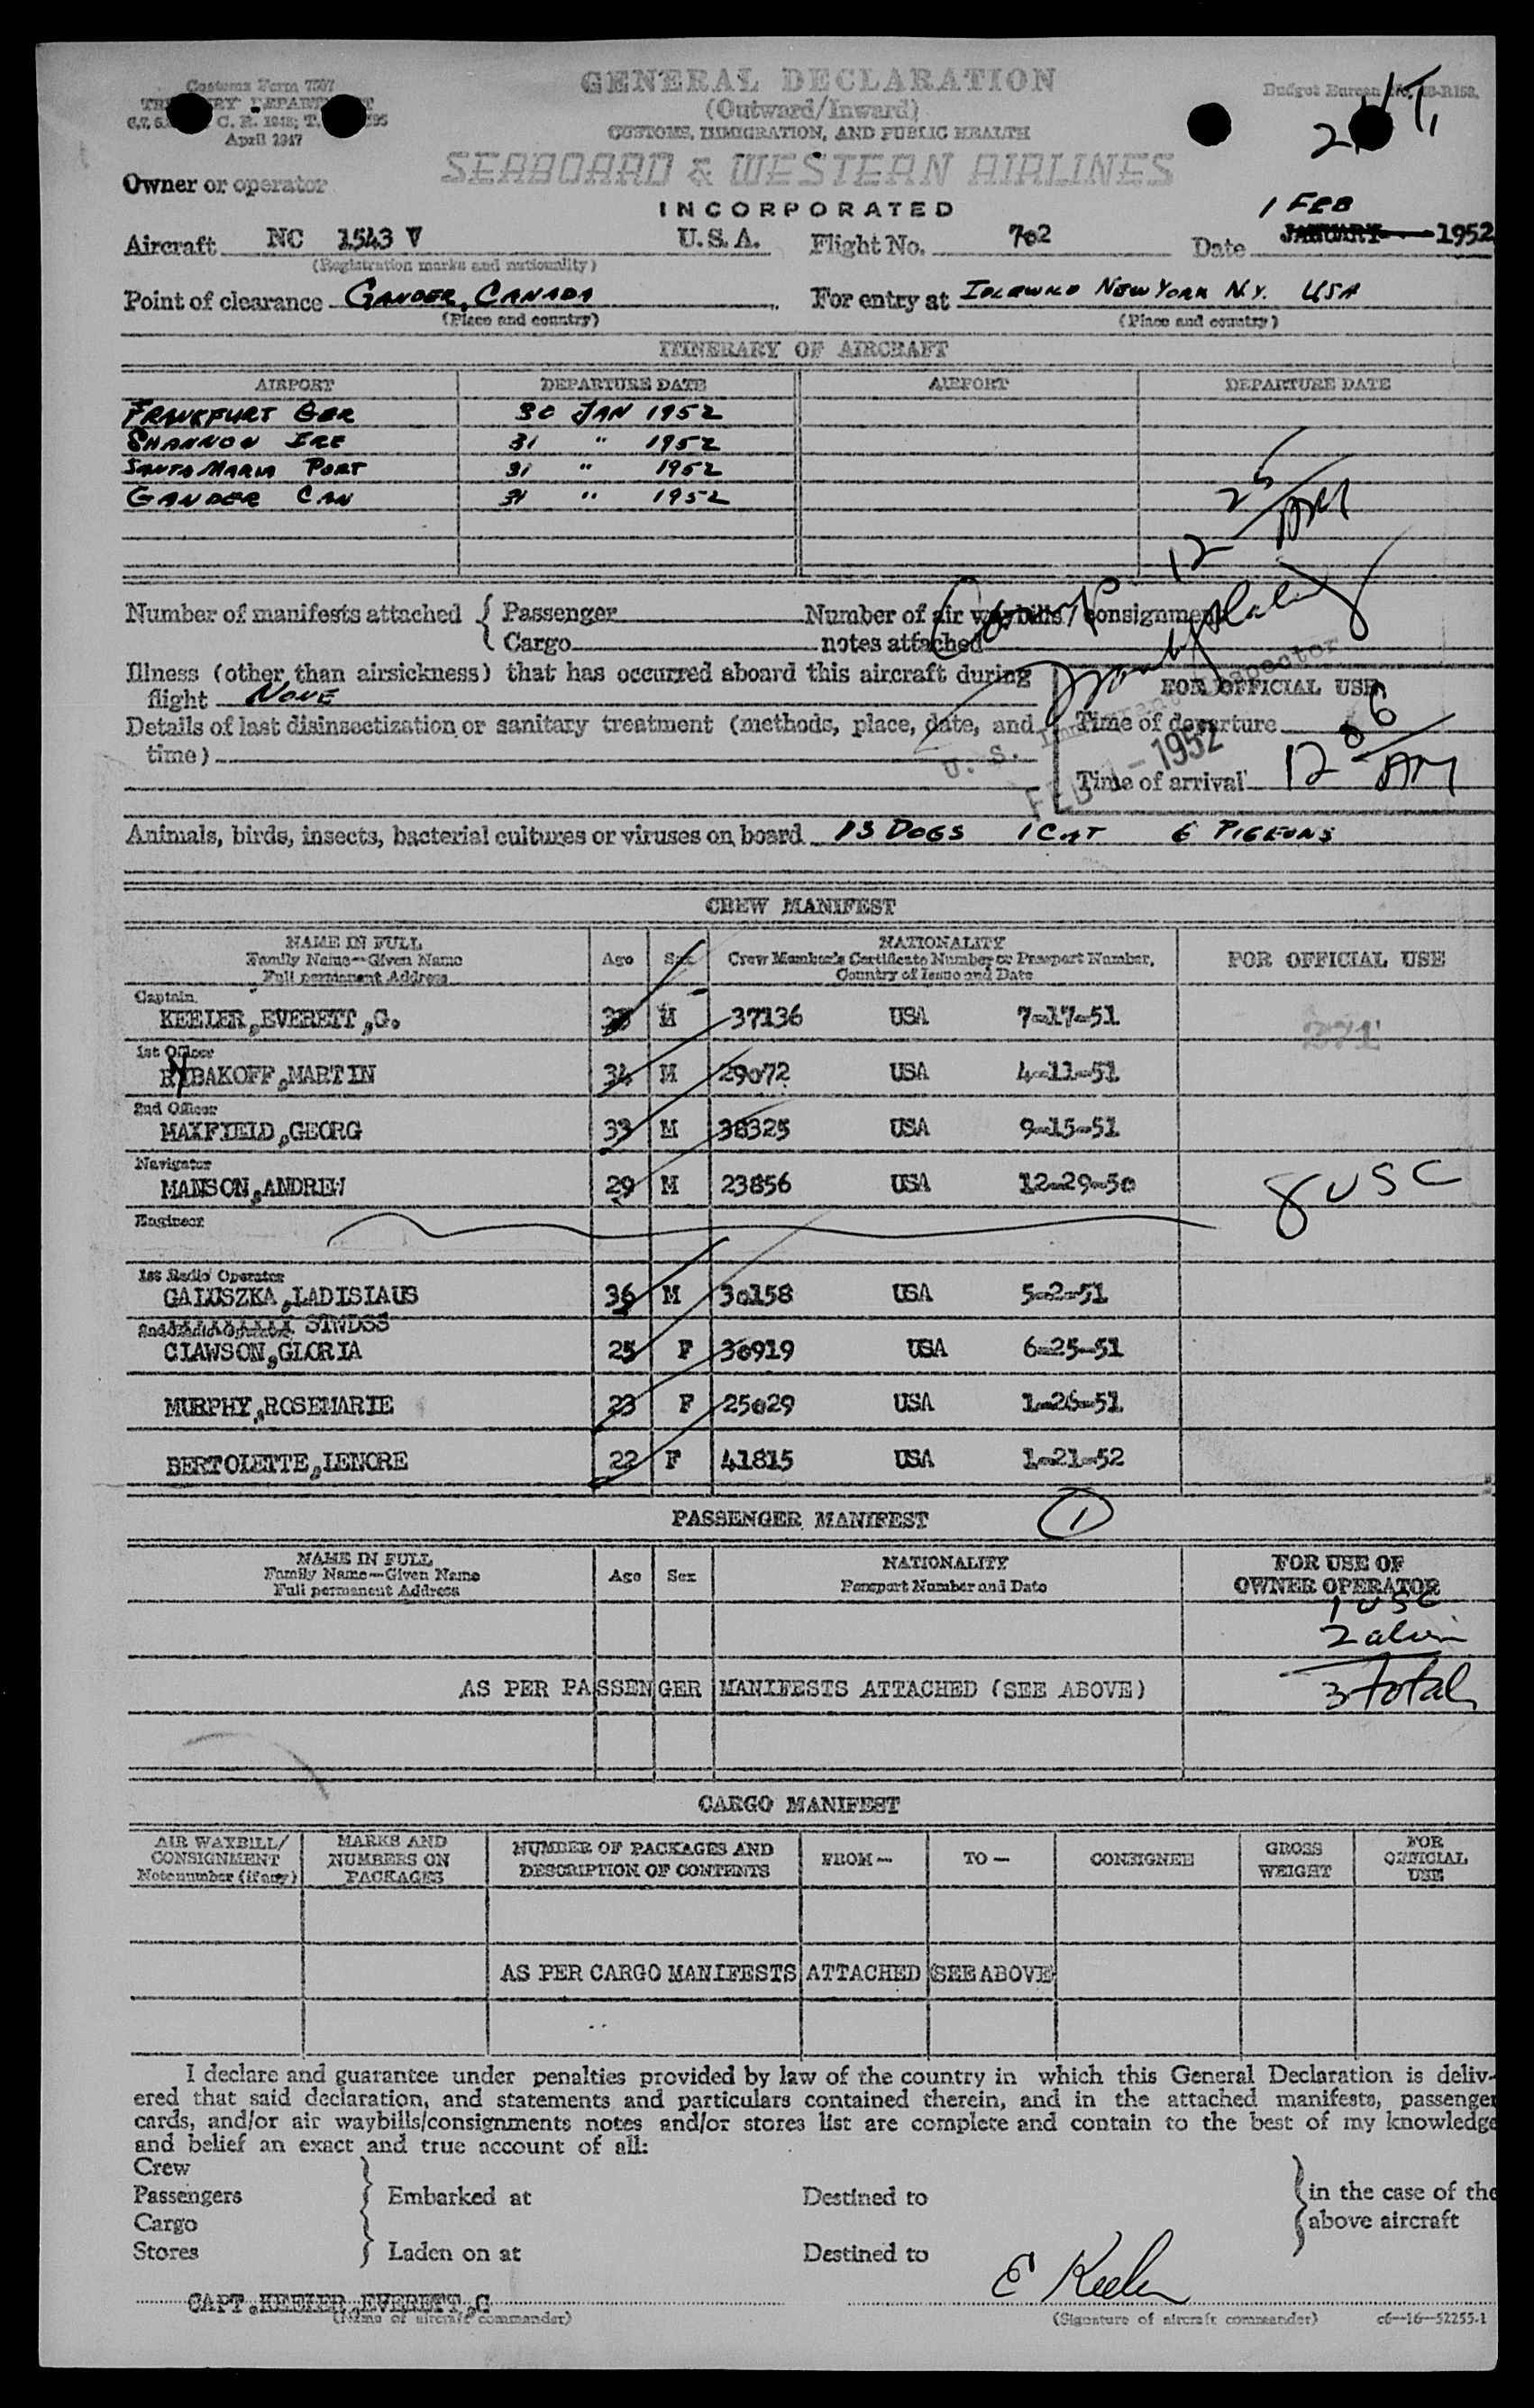 Customs Form 7507
TREASURY DEPARTMENT
April 1947
GENERAL DECLARATION
(Outward/Inward)
CUSTOMS, IMMIGRATION, AND PUBLIC HEALTH
SEABOARD & WESTERN AIRLINES
INCORPORATED
Owner or operator
1 FEB
Aircraft NC 1543 V U.S.A. Flight No. 702 Date JANUARY 1952
(Registration marks and nationality)
Point of clearance GANDER, CANADA For entry at IDLEWILD NEW YORK N.Y. USA
(Place and country) (Place and country)
ITINERARY OF AIRCRAFT
AIRPORT DEPARTURE DATE AIRPORT DEPARTURE DATE
FRANKFURT GER 30 JAN 1952
SHANNON IRE 31 " 1952
SANTA MARIA PORT 31 " 1952
GANDER CAN 31 " 1952
12 25/AM
Number of manifests attached { Passenger Number of air waybills/consignment
Cargo notes attached
Illness (other than airsickness) that has occurred aboard this aircraft during
flight NONE
FOR OFFICIAL USE
Details of last disinsectization or sanitary treatment (methods, place, date, and
time)
Time of departure
U. S. Immigrant Inspector
FEB 1 - 1952
Time of arrival 12 06/AM
Animals, birds, insects, bacterial cultures or viruses on board 13 DOGS 1 CAT 6 PIGEONS
CREW MANIFEST
NAME IN FULL
Family Name—Given Name
Full permanent Address
Age Sex
NATIONALITY
Crew Member's Certificate Number or Passport Number,
Country of Issue and Date
FOR OFFICIAL USE
Captain
KEELER,EVERETT,G. M 37136 USA 7-17-51
271
1st Officer
RYBAKOFF,MARTIN 34 M 29072 USA 4-11-51
2nd Officer
MAXFIELD,GEORG 33 M 38325 USA 9-15-51
Navigator
MANSON,ANDREW 29 M 23856 USA 12-29-50
8 USC
Engineer
1st Radio Operator
GALUSZKA,LADISLAUS 36 M 30158 USA 5-2-51
2nd Radio Operator STWDSS
CLAWSON,GLORIA 25 F 36919 USA 6-25-51
MURPHY,ROSEMARIE 23 F 25029 USA 1-26-51
BERTOLETTE,LENORE 22 F 41815 USA 1-21-52
PASSENGER MANIFEST 1
NAME IN FULL
Family Name—Given Name
Full permanent Address
Age Sex
NATIONALITY
Passport Number and Date
FOR USE OF
OWNER OPERATOR
1 USC
2 alien
AS PER PASSENGER MANIFESTS ATTACHED (SEE ABOVE)
3 total
CARGO MANIFEST
AIR WAYBILL/
CONSIGNMENT
Note number (if any)
MARKS AND
NUMBERS ON
PACKAGES
NUMBER OF PACKAGES AND
DESCRIPTION OF CONTENTS
FROM— TO— CONSIGNEE
GROSS
WEIGHT
FOR
OFFICIAL
USE
AS PER CARGO MANIFESTS ATTACHED (SEE ABOVE
I declare and guarantee under penalties provided by law of the country in which this General Declaration is deliv-
ered that said declaration, and statements and particulars contained therein, and in the attached manifests, passenger
cards, and/or air waybills/consignments notes and/or stores list are complete and contain to the best of my knowledge
and belief an exact and true account of all:
Crew
Passengers } Embarked at Destined to } in the case of the
Cargo above aircraft
Stores } Laden on at Destined to
E Keeler
CAPT.KEELER,EVERETT,G
(Name of aircraft commander) (Signature of aircraft commander) c6—16—52255-1